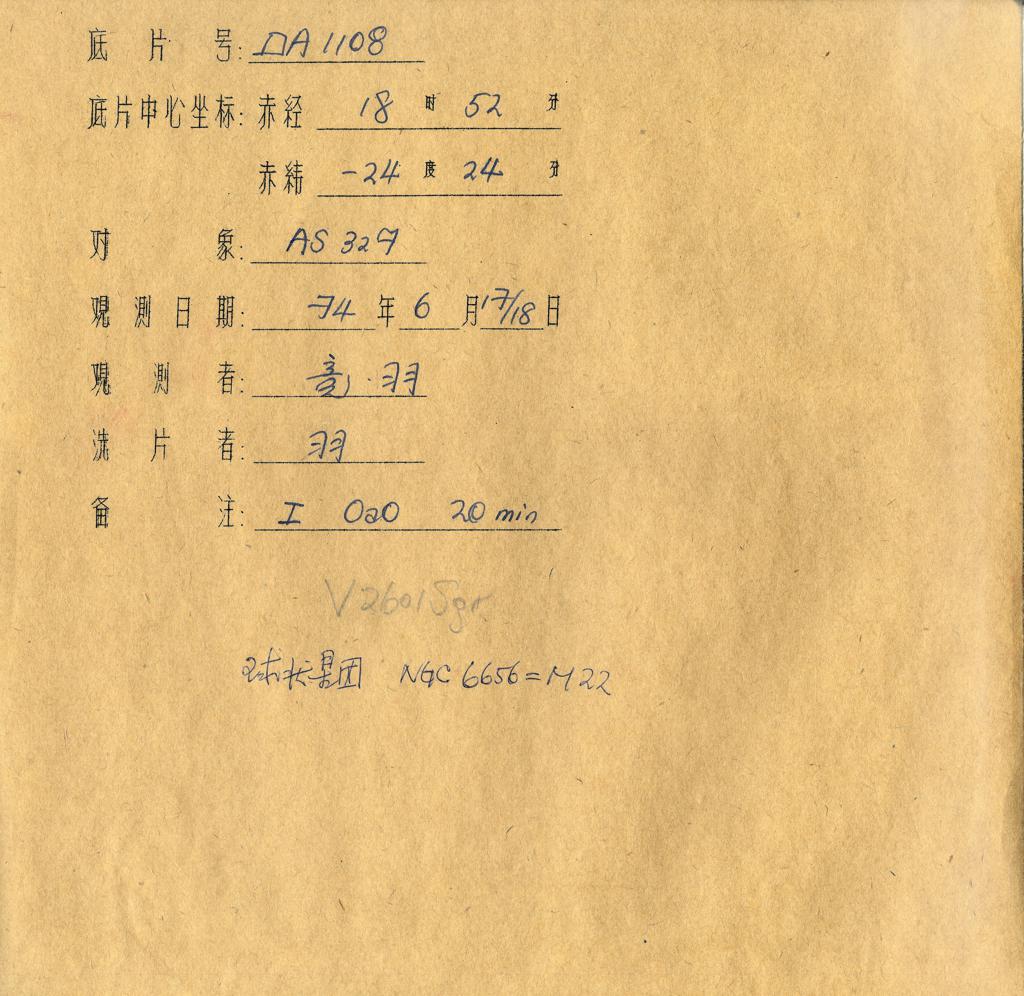 底片号: DA 1108
底片中心坐标: 赤经 18 时 52 分
赤纬 -24 度 24 分
对象: AS 327
观测日期: 74 年 6 月 17/18 日
观测者: 竟·羽
洗片者: 羽
备注: I OaO 20 min
V2601Sgr
球状星团 NGC 6656=M22